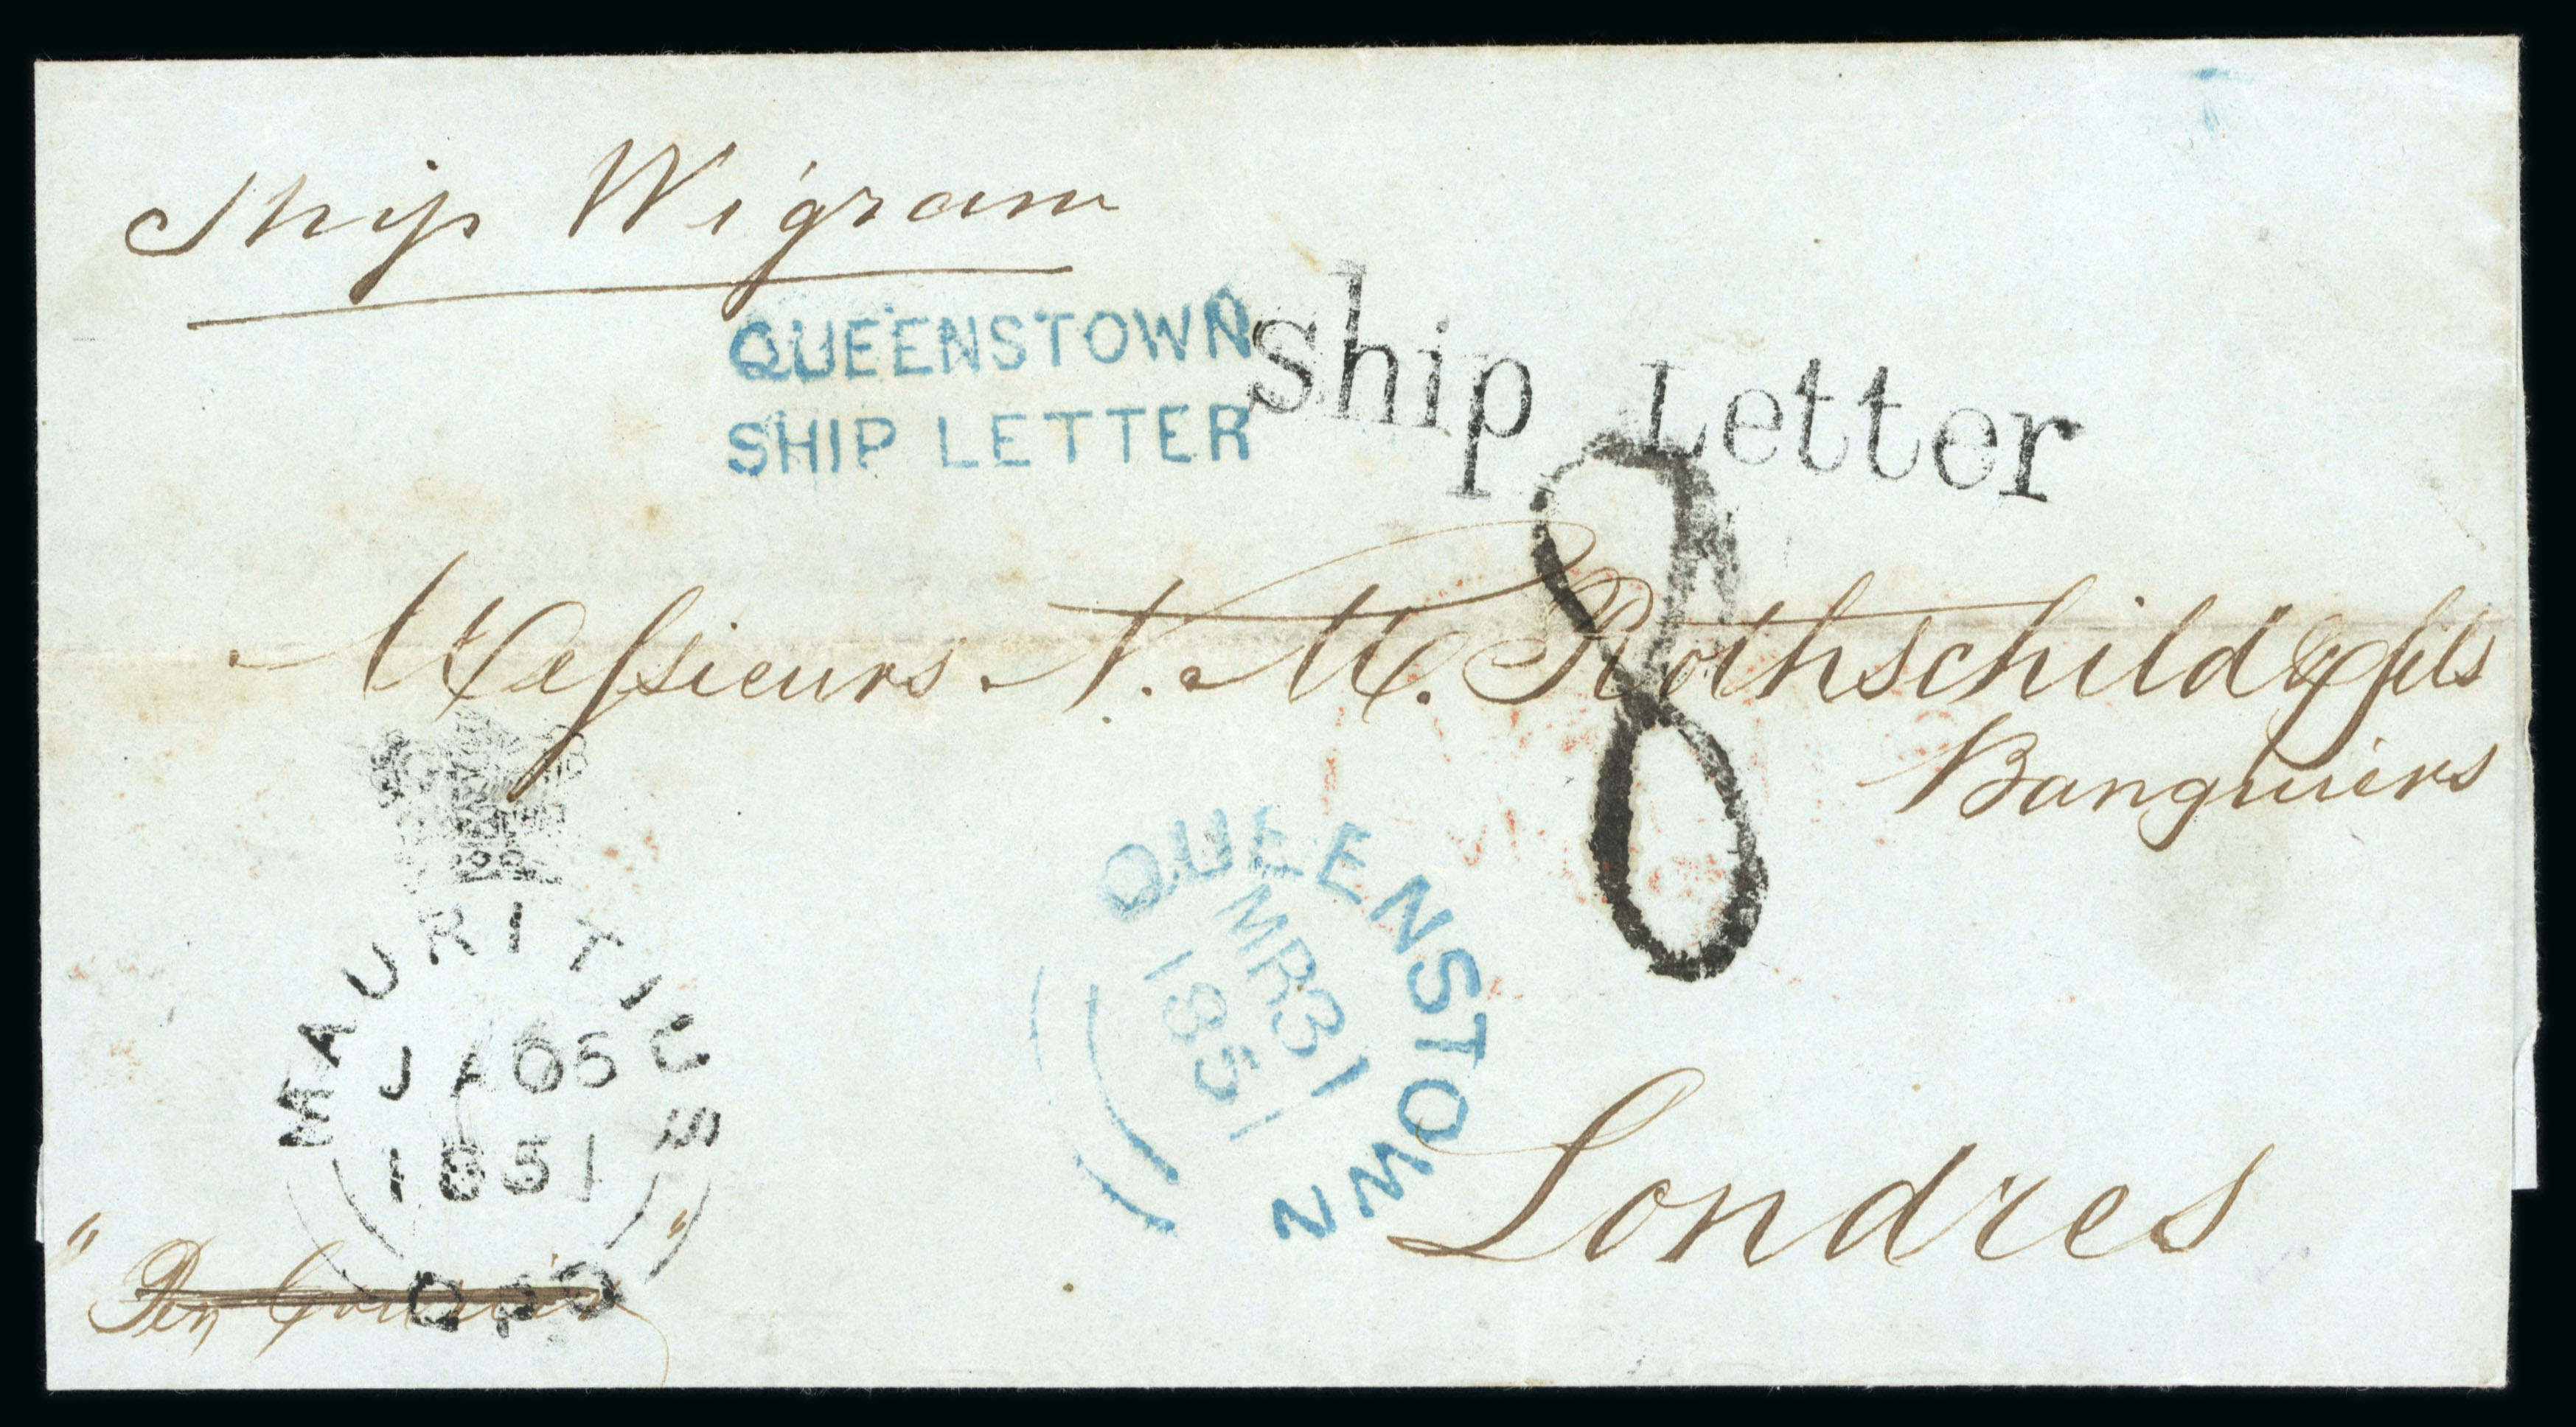 Ship Wigram
QUEENSTOWN
SHIP LETTER
Ship Letter
8
Messieurs N. M. Rothschild & fils
Banquiers
MAURITIUS
JA 06
1851
GPO
QUEENSTOWN
MR 31
1851
Londres
"Per